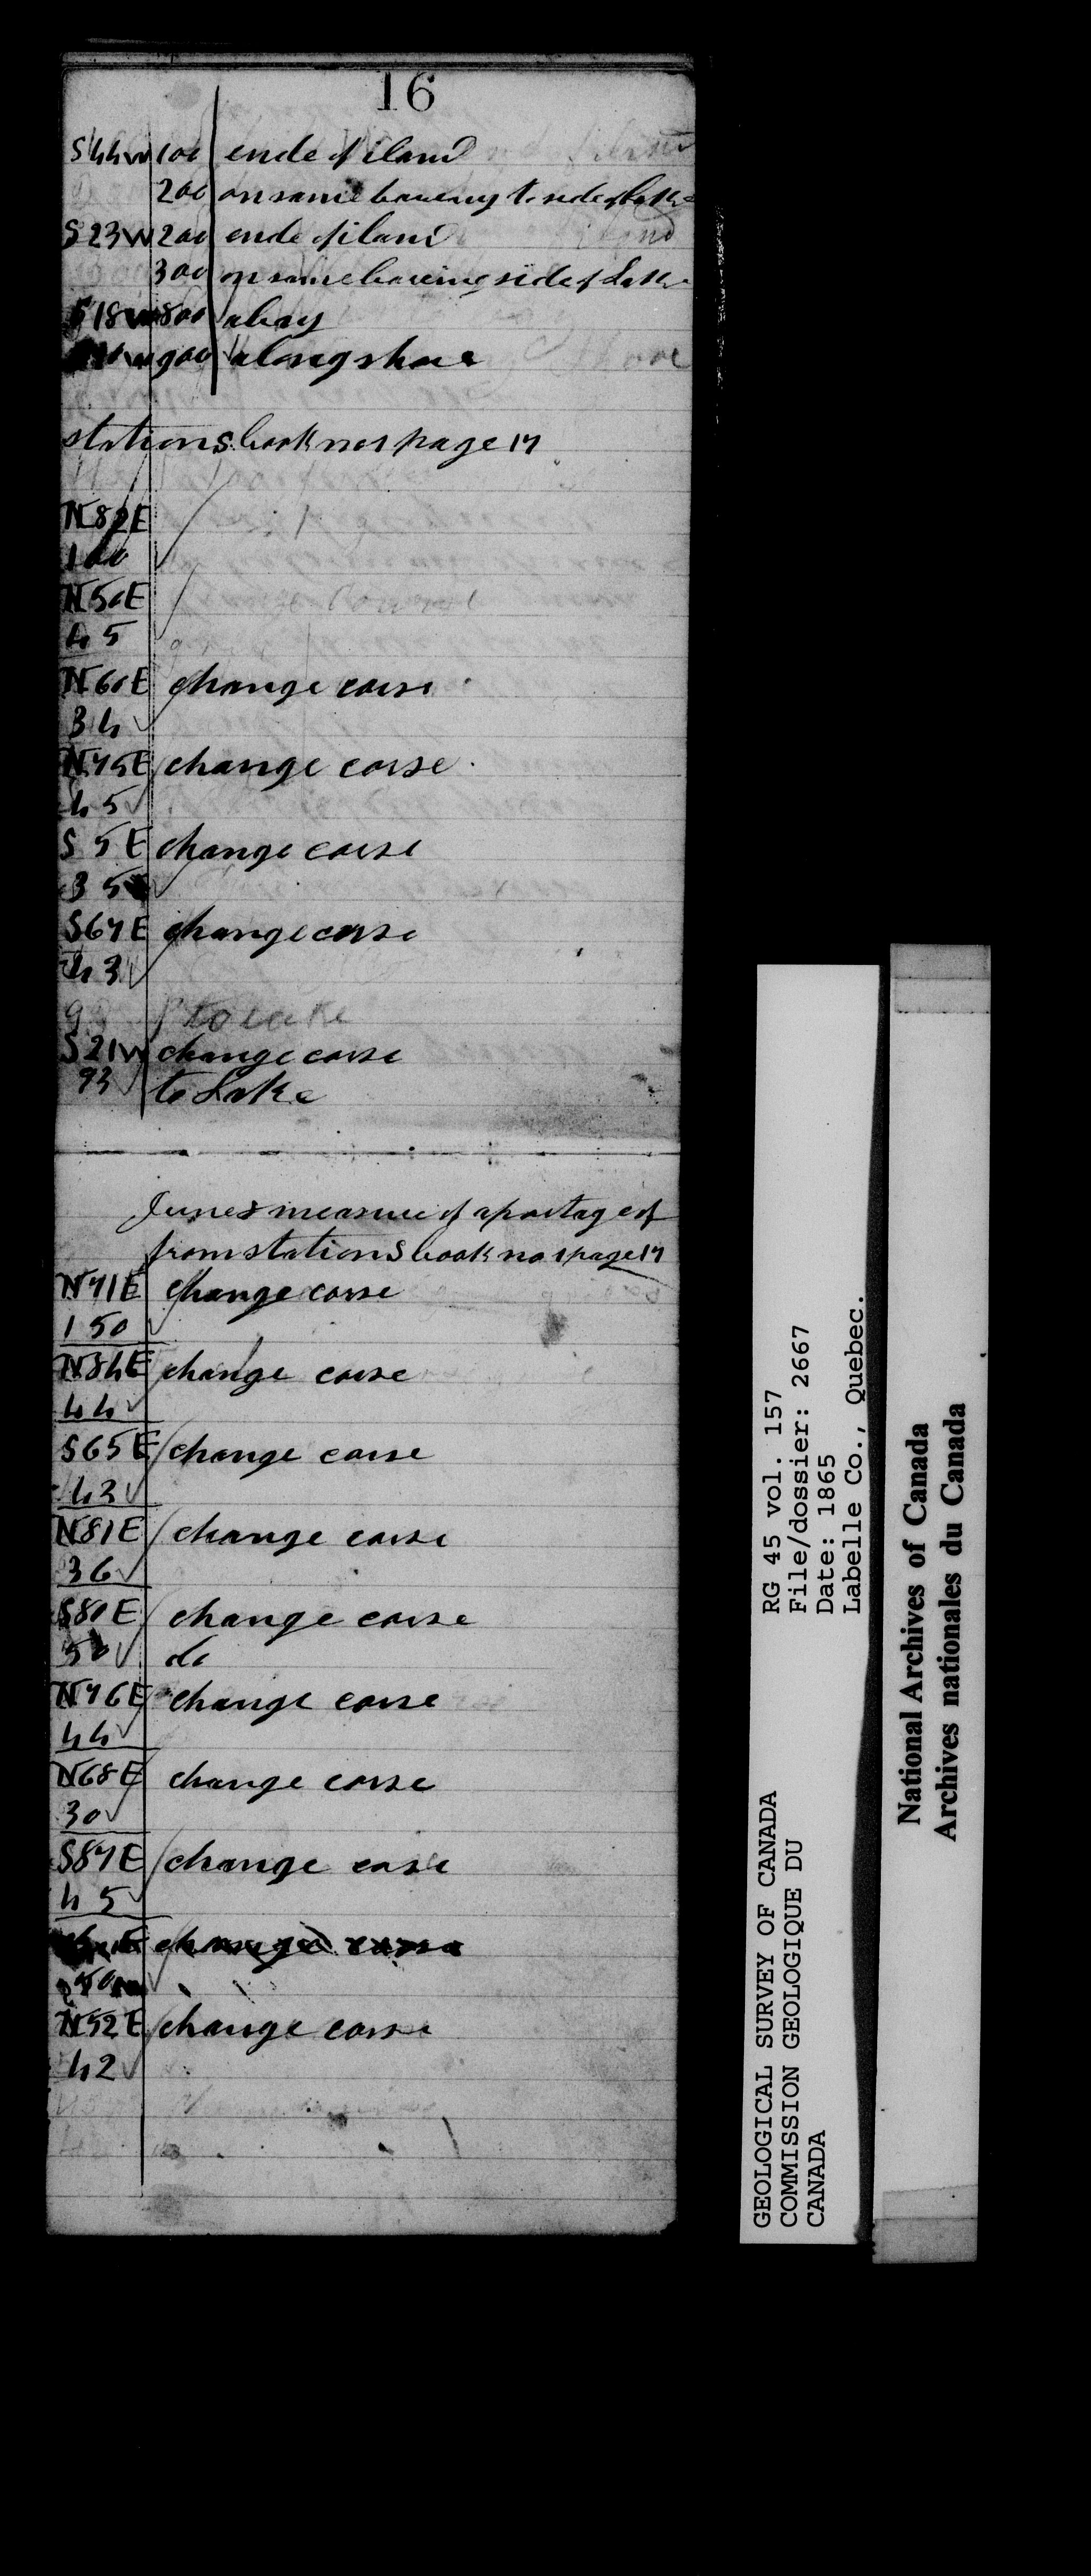 16
S44W 100 ende of iland
200 on same baering to side of Lake
S23W 200 ende of iland
300 on same baering side of Lake
S18W 800 a bay
900 along shore
station S book no 1 page 17
N82E
100
N50E
45
N60E change corse
34
N75E change corse
45
S 5 E change corse
35
S67E change corse
43
to lake
S21W change corse
93 to Lake
June 8 measure of a portage of
from station S book no 1 page 17
N71E change corse
150
N84E change corse
44
S65E change corse
43
N81E change corse
36
S80E change corse
50 do
N76E change corse
44
N68E change corse
30
S87E change corse
45
change corse
50
N52E change corse
42
GEOLOGICAL SURVEY OF CANADA
COMMISSION GEOLOGIQUE DU
CANADA
RG 45 vol. 157
File/dossier: 2667
Date: 1865
Labelle Co., Quebec.
National Archives of Canada
Archives nationales du Canada